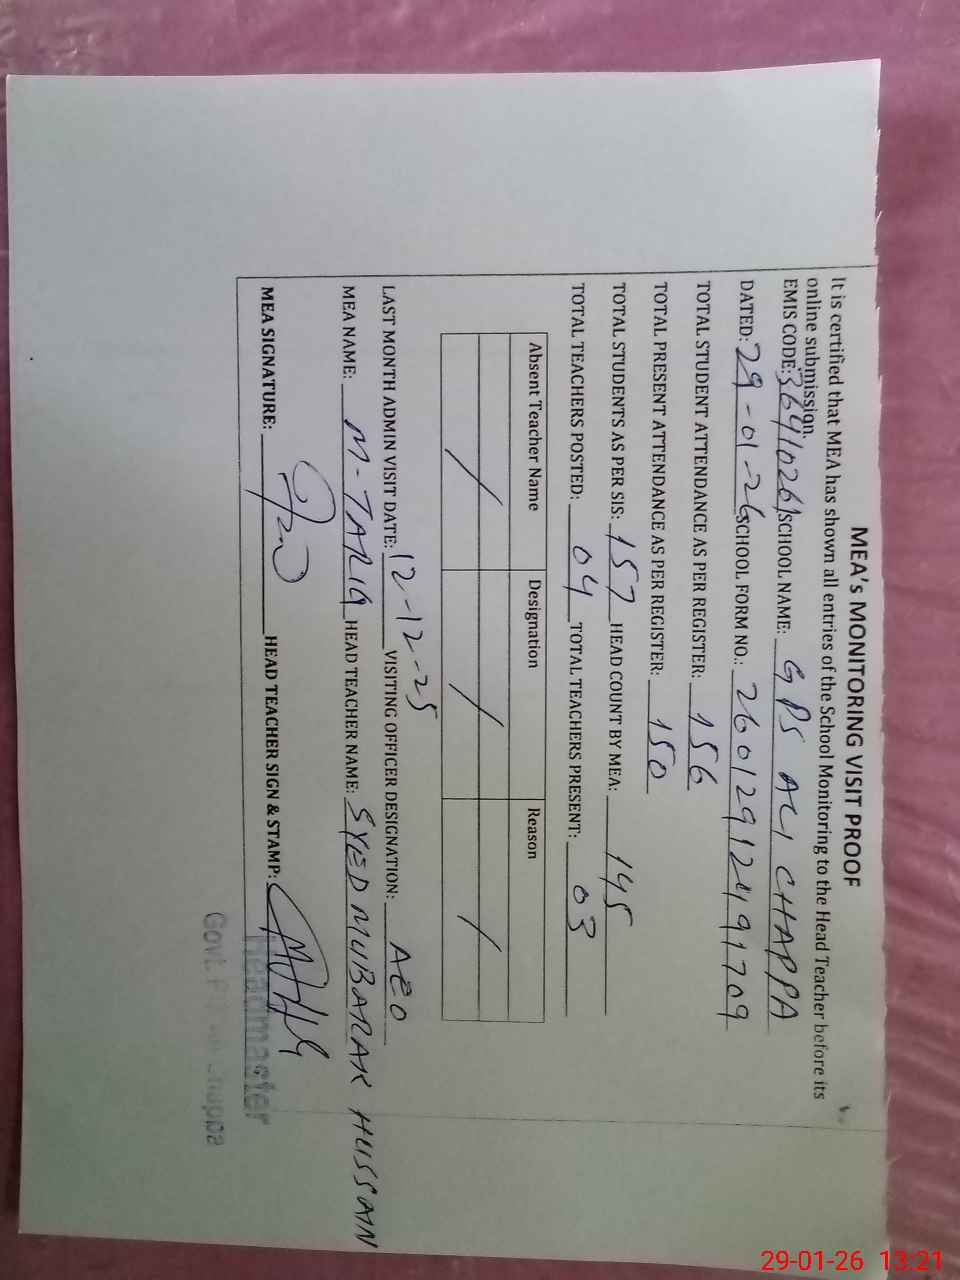 MEA's MONITORING VISIT PROOF
It is certified that MEA has shown all entries of the School Monitoring to the Head Teacher before its
online submission.
EMIS CODE: 36410261 SCHOOL NAME: GPS ALI CHAPPA
DATED: 29-01-26 SCHOOL FORM NO.: 26012912491709
TOTAL STUDENT ATTENDANCE AS PER REGISTER: 156
TOTAL PRESENT ATTENDANCE AS PER REGISTER: 150
TOTAL STUDENTS AS PER SIS: 157 HEAD COUNT BY MEA: 145
TOTAL TEACHERS POSTED: 04 TOTAL TEACHERS PRESENT: 03
Absent Teacher Name Designation Reason
/ / /
LAST MONTH ADMIN VISIT DATE: 12-12-25 VISITING OFFICER DESIGNATION: AEO
MEA NAME: M-TARIQ HEAD TEACHER NAME: SYED MUBARAK HUSSAIN
MEA SIGNATURE: HEAD TEACHER SIGN & STAMP:
Headmaster
Govt. Chappa
29-01-26 13:21